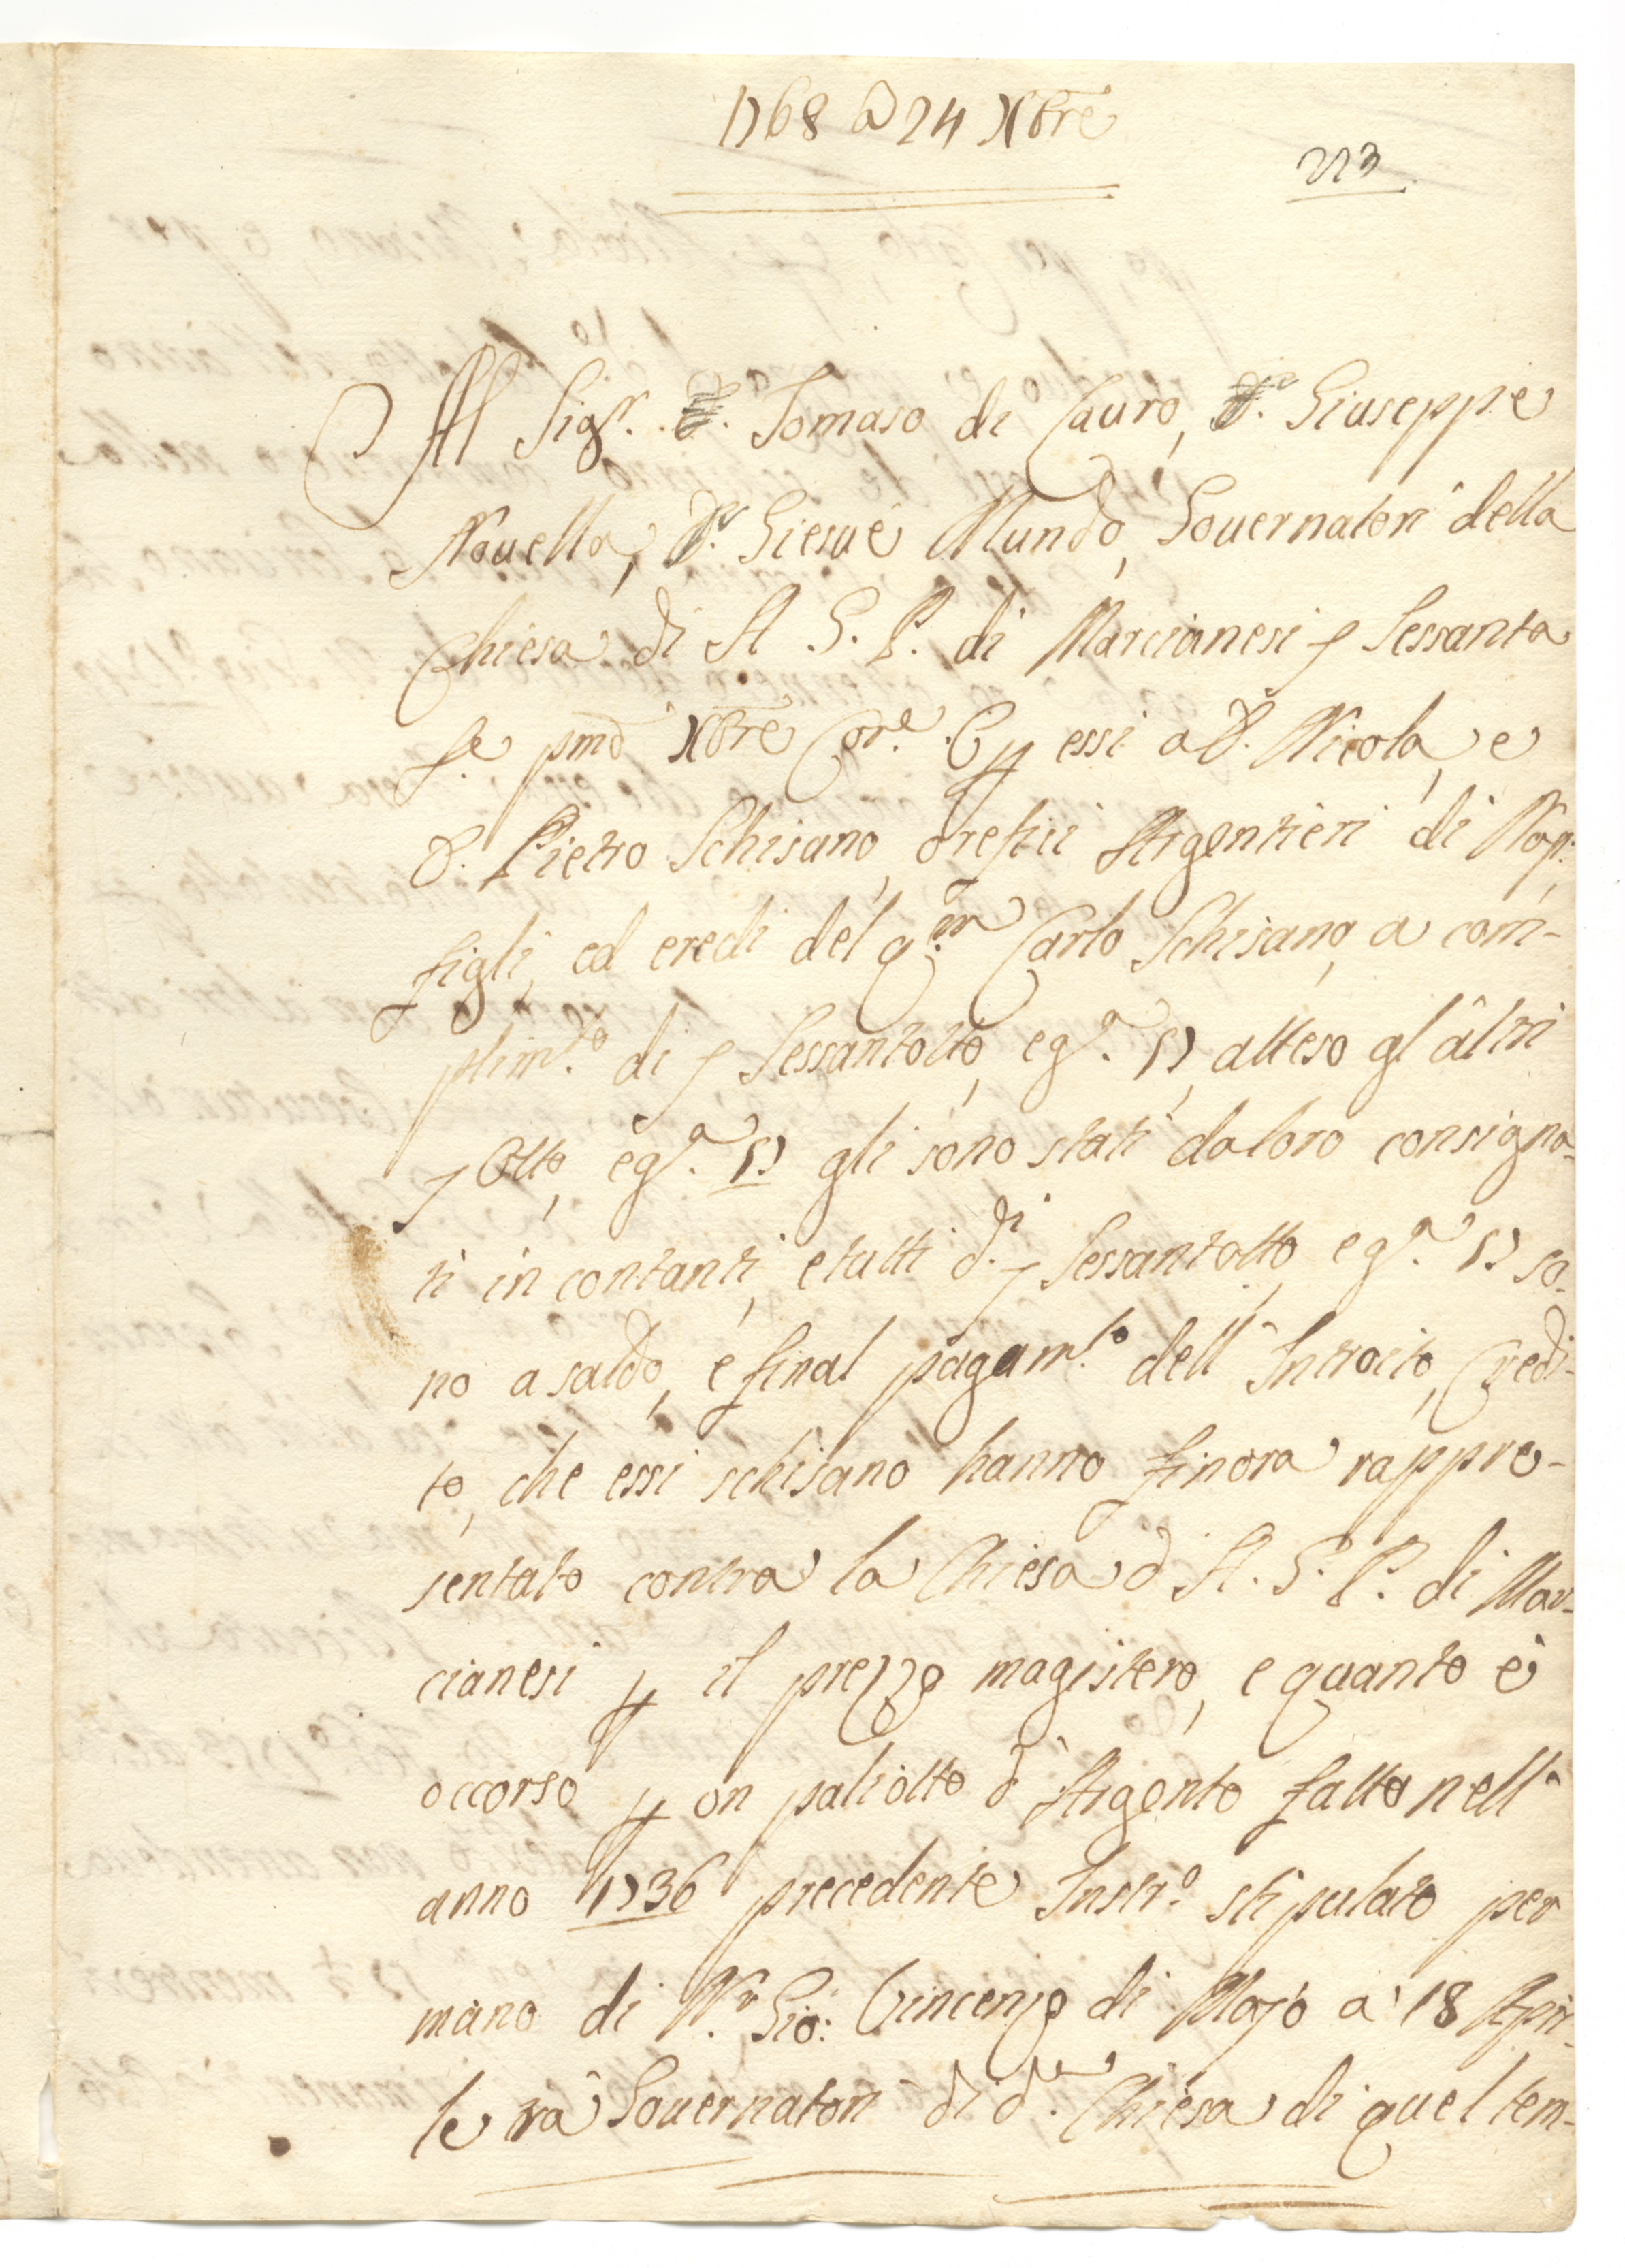 1768 a 24 Xbre
213
Al Sigr. D. Tomaso di Tauro, Dr. Giuseppe
Nouella, Dr. Giesue Mundo, Gouernatori della
Chiesa di A. G. P. di Marcianesi Sessanta
f.e pmo Xbre Cor.e E p essi a D. Nicola, e
D. Pietro Schisano, orefici Argentieri di Nap:,
figli, ed eredi del q.m Carlo Schisano, a com-
plim.to di Sessantotto, e g.a 17, atteso gl'altri
Otto, e g.a 17 gli sono stati da loro consigna-
ti in contanti, e tutti d.i Sessantotto, e g.a 17 so-
no a saldo, e final pagam.to dell'Introito, Credi-
to, che essi schisano hanno finora rappre-
sentato contra la Chiesa d'A. G. P. di Mar-
cianesi p il prezzo magistero, e quanto è
occorso p un paliotto d'Argento fatto nell'
anno 1736 precedente Instr.o stipulato per
mano di Nr. Gio: Vincenzo di Majo a' 18 Apri-
le trà Gouernatori di d.a Chiesa di quel tem-